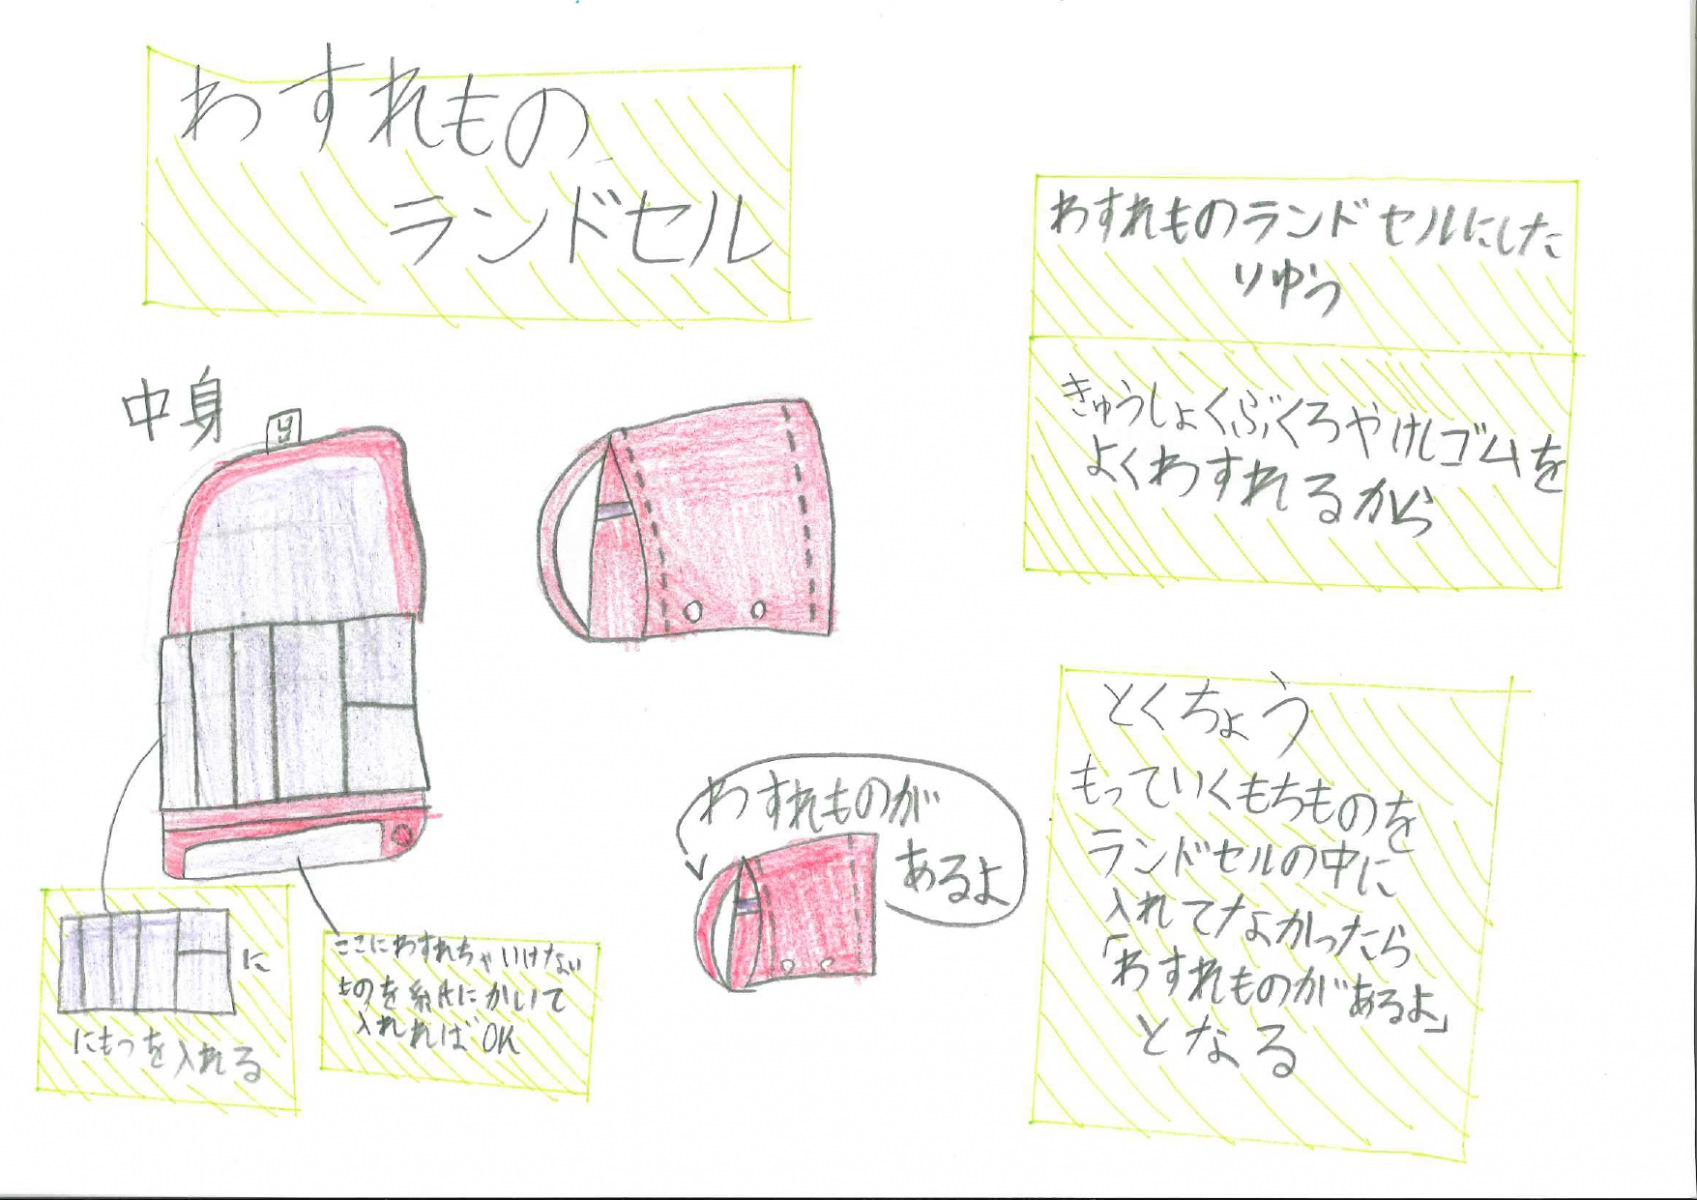 わすれもの
ランドセル
わすれものランドセルにした
りゆう
きゅうしょくぶくろやけしゴムを
よくわすれるから
中身
わすれものが
あるよ
とくちょう
もっていくもちものを
ランドセルの中に
入れてなかったら
「わすれものがあるよ」
となる
に
にもつを入れる
ここにわすれちゃいけない
ものを紙にかいて
入れればOK